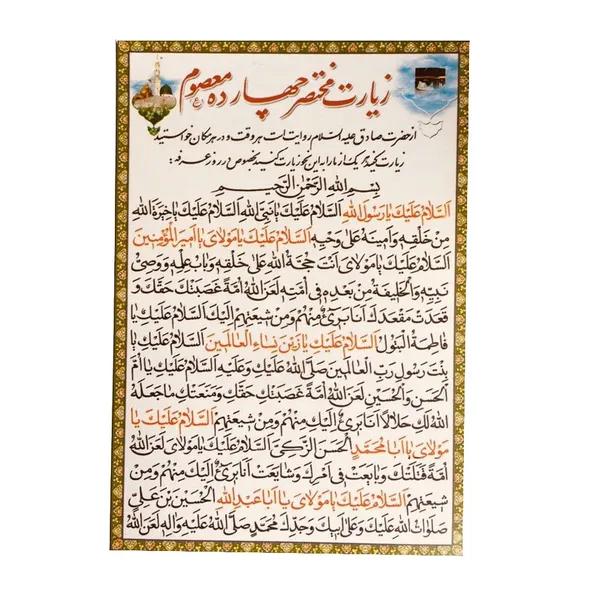 زیارت مختصر چهارده معصوم ع
از حضرت صادق علیه السلام روایت است هر وقت و در هر مکان خواستید
زیارت کنید هر یک از ما را به این نحو زیارت کنید بخصوص در روز عرفه:
بِسْمِ اللهِ الرَّحْمٰنِ الرَّحیمِ
اَلسَّلامُ عَلَیْكَ یا رَسُولَ اللهِ اَلسَّلامُ عَلَیْكَ یا نَبِیَّ اللهِ اَلسَّلامُ عَلَیْكَ یا خِیَرَةَ اللهِ
مِنْ خَلْقِهِ وَ اَمینَهُ عَلی وَحْیِهِ اَلسَّلامُ عَلَیْكَ یا مَوْلایَ یا اَمیرَ الْمُؤْمِنینَ
اَلسَّلامُ عَلَیْكَ یا مَوْلایَ اَنْتَ حُجَّةُ اللهِ عَلی خَلْقِهِ وَ بابُ عِلْمِهِ وَ وَصِیُّ
نَبِیِّهِ وَ الْخَلیفَةُ مِنْ بَعْدِهِ فی اُمَّتِهِ لَعَنَ اللهُ اُمَّةً غَصَبَتْكَ حَقَّكَ وَ
قَعَدَتْ مَقْعَدَكَ اَنَا بَریءٌ مِنْهُمْ وَ مِنْ شیعَتِهِمْ اِلَیْكَ اَلسَّلامُ عَلَیْكِ یا
فاطِمَةُ الْبَتُولُ اَلسَّلامُ عَلَیْكِ یا زَیْنَ نِساءِ الْعالَمینَ اَلسَّلامُ عَلَیْكِ یا
بِنْتَ رَسُولِ رَبِّ الْعالَمینَ صَلَّی اللهُ عَلَیْكِ وَ عَلَیْهِ اَلسَّلامُ عَلَیْكِ یا اُمَّ
الْحَسَنِ وَ الْحُسَیْنِ لَعَنَ اللهُ اُمَّةً غَصَبَتْكِ حَقَّكِ وَ مَنَعَتْكِ ما جَعَلَهُ
اللهُ لَكِ حَلالاً اَنَا بَریءٌ اِلَیْكِ مِنْهُمْ وَ مِنْ شیعَتِهِمْ اَلسَّلامُ عَلَیْكَ یا
مَوْلایَ یا اَبا مُحَمَّدٍ الْحَسَنَ الزَّکِیَّ اَلسَّلامُ عَلَیْكَ یا مَوْلایَ لَعَنَ اللهُ
اُمَّةً قَتَلَتْكَ وَ بایَعَتْ فی اَمْرِكَ وَ شایَعَتْ اَنَا بَریءٌ اِلَیْكَ مِنْهُمْ وَ مِنْ
شیعَتِهِمْ اَلسَّلامُ عَلَیْكَ یا مَوْلایَ یا اَبا عَبْدِ اللهِ الْحُسَیْنَ بْنَ عَلِیٍّ
صَلَواتُ اللهِ عَلَیْكَ وَ عَلی اَبیكَ وَ جَدِّكَ مُحَمَّدٍ صَلَّی اللهُ عَلَیْهِ وَ الِهِ لَعَنَ اللهُ